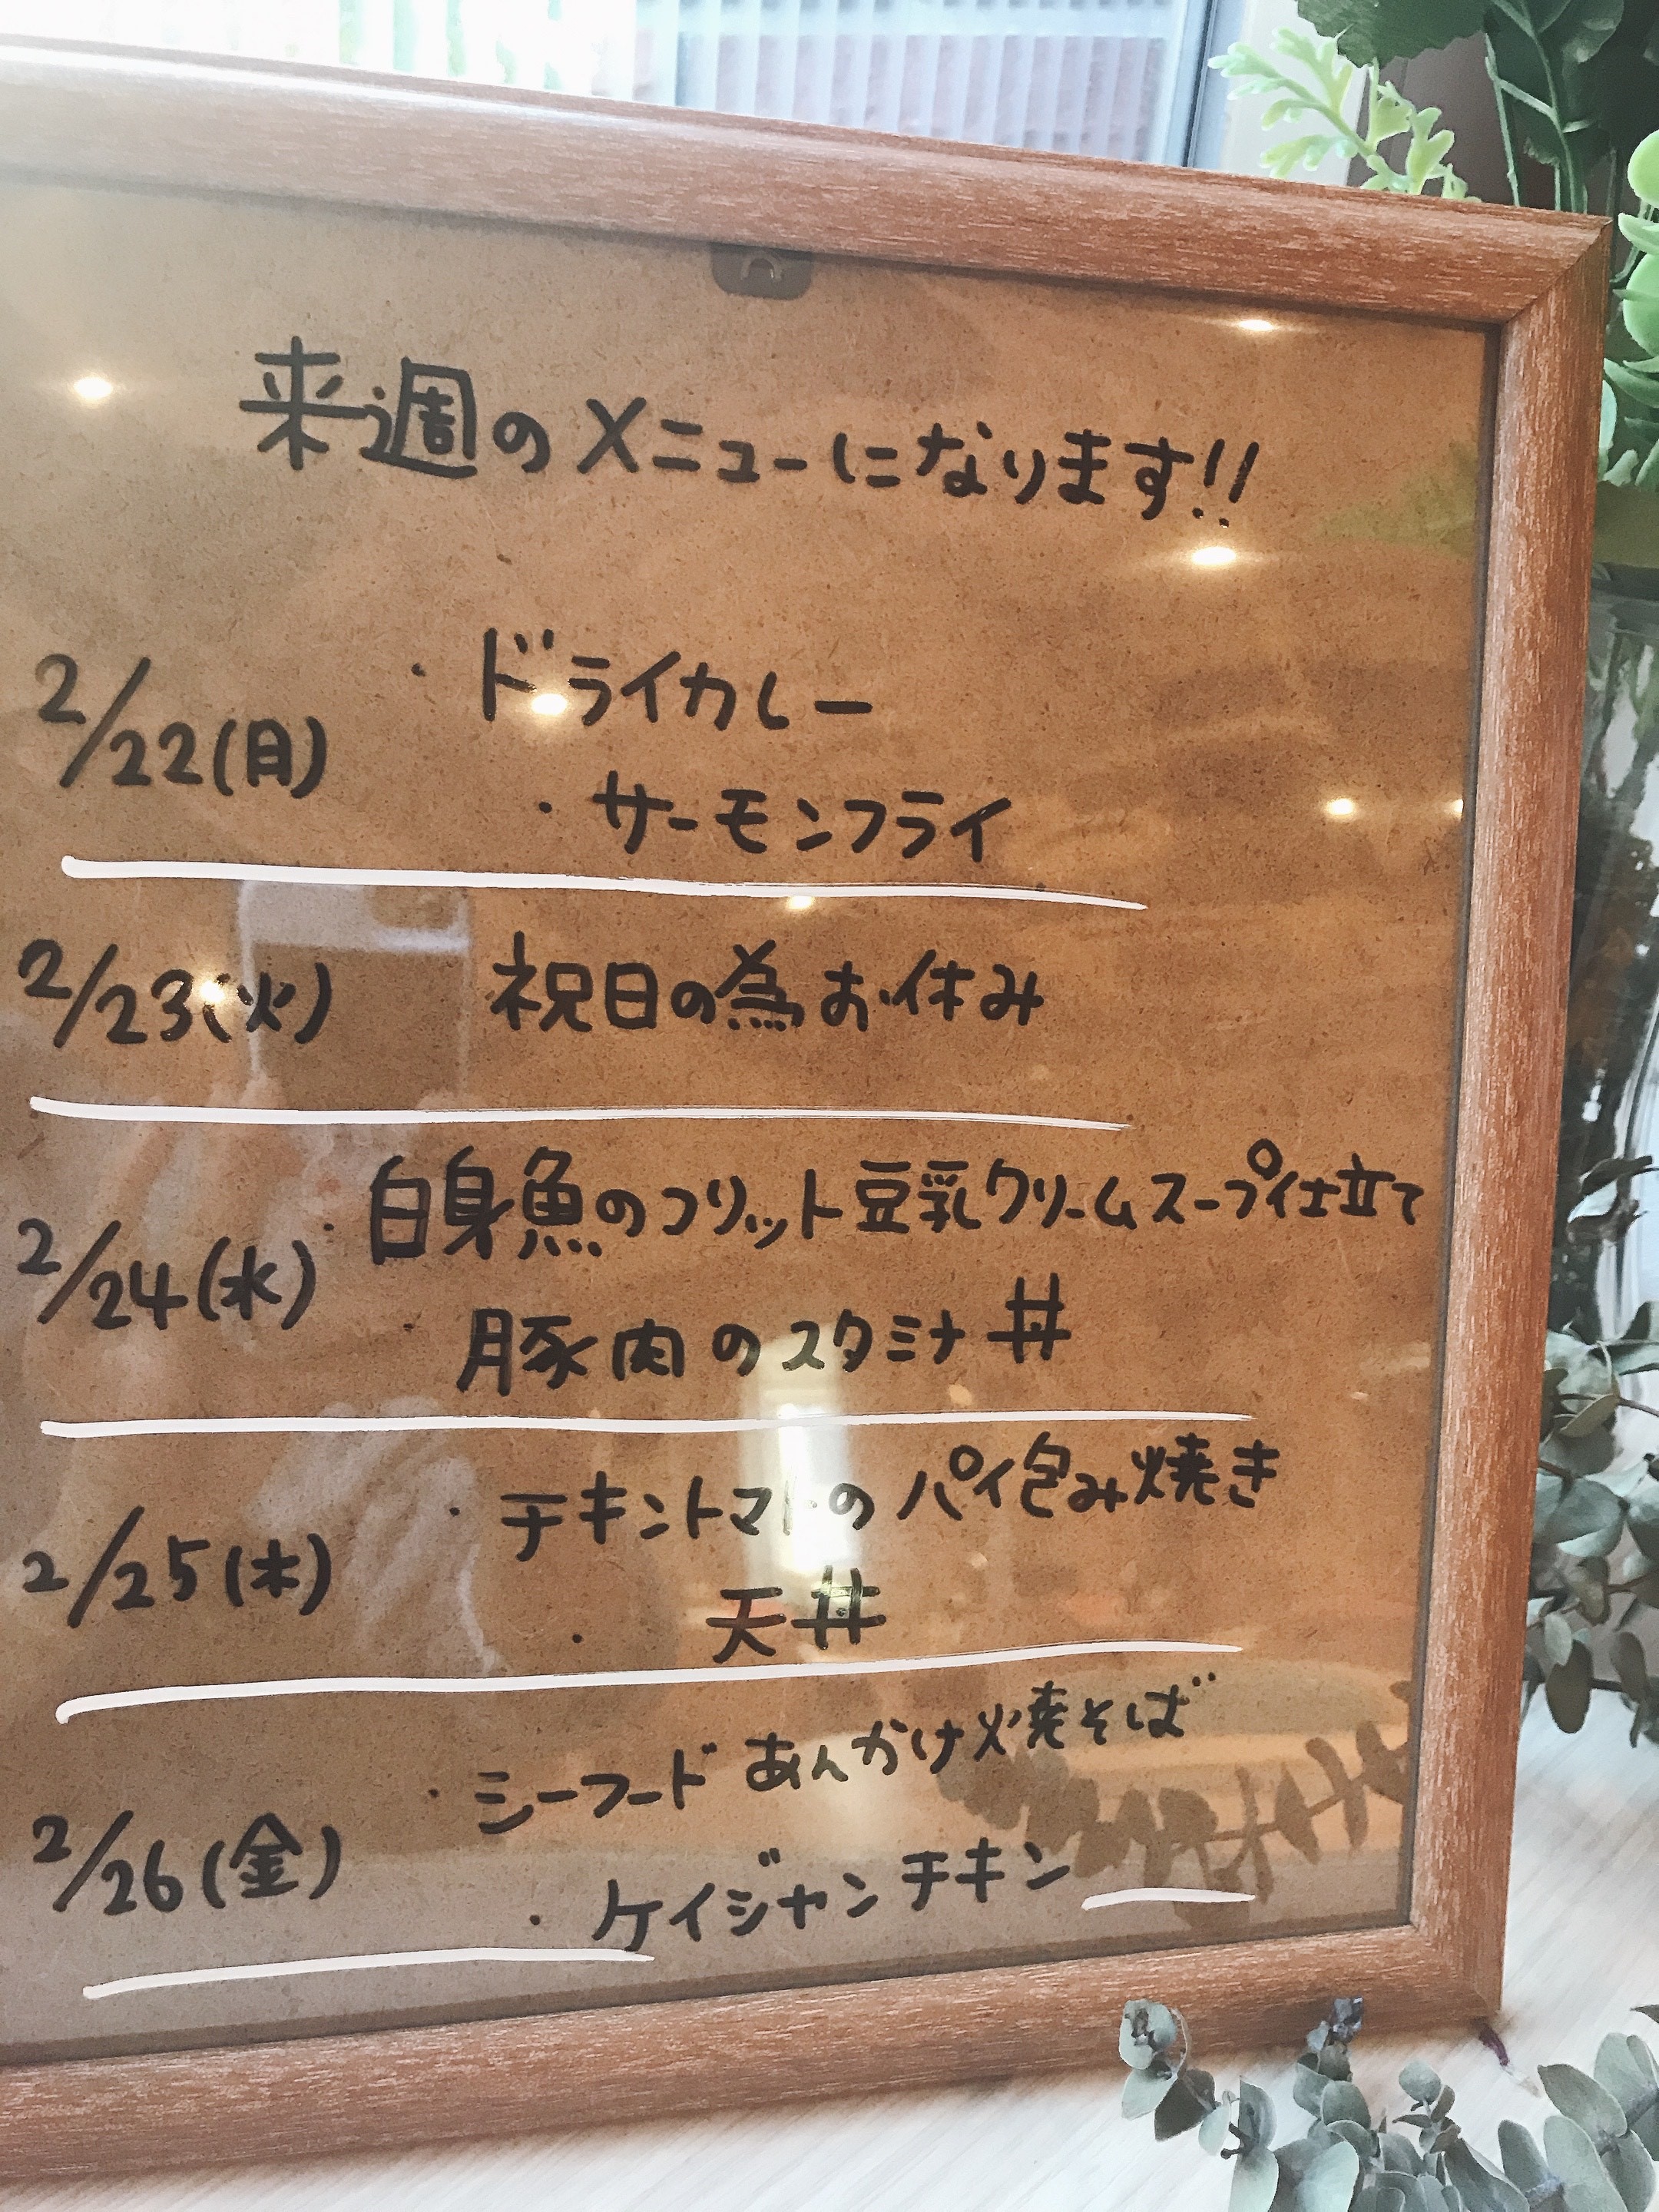 来週のメニューになります!!
2/22(月)
・ドライカレー
・サーモンフライ
2/23(火) 祝日の為お休み
2/24(水)
・白身魚のフリット豆乳クリームスープ仕立て
・豚肉のスタミナ丼
2/25(木)
・チキントマトのパイ包み焼き
・天丼
2/26(金)
・シーフードあんかけ焼そば
・ケイジャンチキン